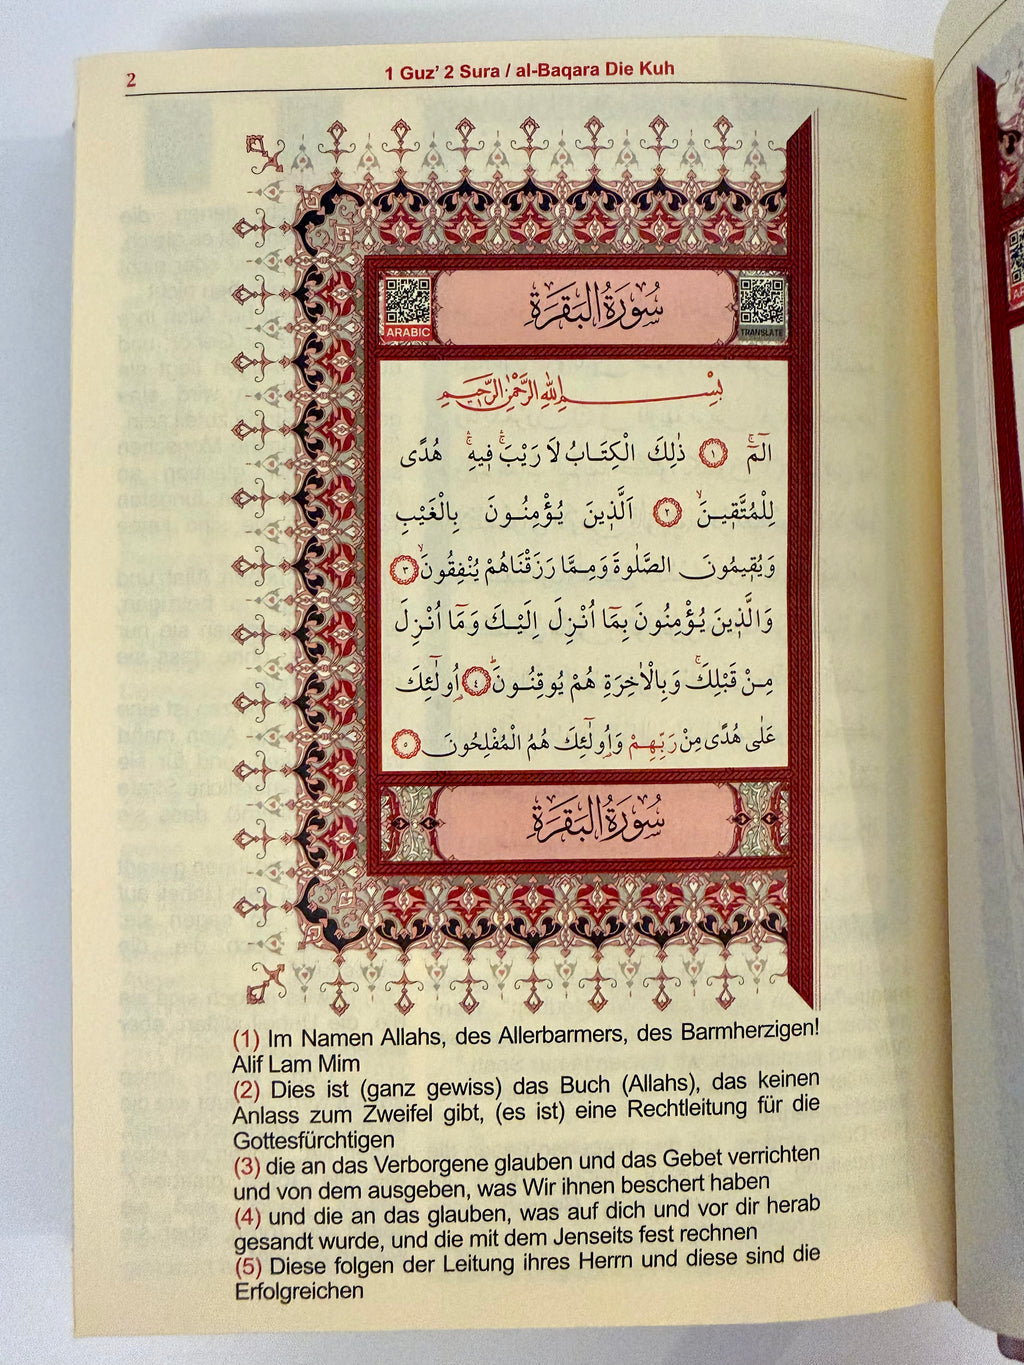 2
1 Guz’ 2 Sura / al-Baqara Die Kuh
سُورَةُ الْبَقَرَةِ
ARABIC
TRANSLATE
بِسْمِ اللّٰهِ الرَّحْمٰنِ الرَّحِيمِ
الٓمٓۚ ﴿١﴾ ذٰلِكَ الْكِتَابُ لَا رَيْبَۚ فِيهِۚ هُدًى
لِلْمُتَّقِينَۙ ﴿٢﴾ اَلَّذِينَ يُؤْمِنُونَ بِالْغَيْبِ
وَيُقِيمُونَ الصَّلٰوةَ وَمِمَّا رَزَقْنَاهُمْ يُنْفِقُونَۙ ﴿٣﴾
وَالَّذِينَ يُؤْمِنُونَ بِمَٓا اُنْزِلَ اِلَيْكَ وَمَٓا اُنْزِلَ
مِنْ قَبْلِكَۚ وَبِالْاٰخِرَةِ هُمْ يُوقِنُونَۜ ﴿٤﴾ اُو۬لٰٓئِكَ
عَلٰى هُدًى مِنْ رَبِّهِمْ وَاُو۬لٰٓئِكَ هُمُ الْمُفْلِحُونَ ﴿٥﴾
سُورَةُ الْبَقَرَةِ
(1) Im Namen Allahs, des Allerbarmers, des Barmherzigen!
Alif Lam Mim
(2) Dies ist (ganz gewiss) das Buch (Allahs), das keinen
Anlass zum Zweifel gibt, (es ist) eine Rechtleitung für die
Gottesfürchtigen
(3) die an das Verborgene glauben und das Gebet verrichten
und von dem ausgeben, was Wir ihnen beschert haben
(4) und die an das glauben, was auf dich und vor dir herab
gesandt wurde, und die mit dem Jenseits fest rechnen
(5) Diese folgen der Leitung ihres Herrn und diese sind die
Erfolgreichen